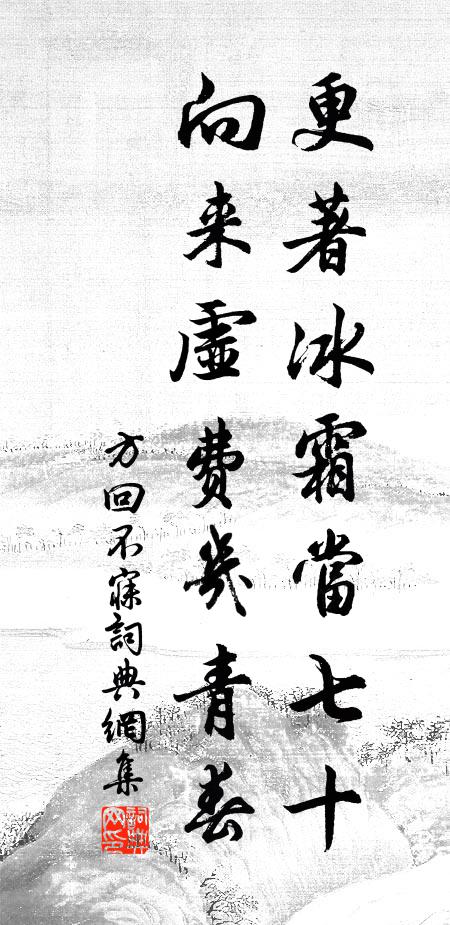 更著冰霜當七十
向来虛費幾青春
方回不寐詞典網集